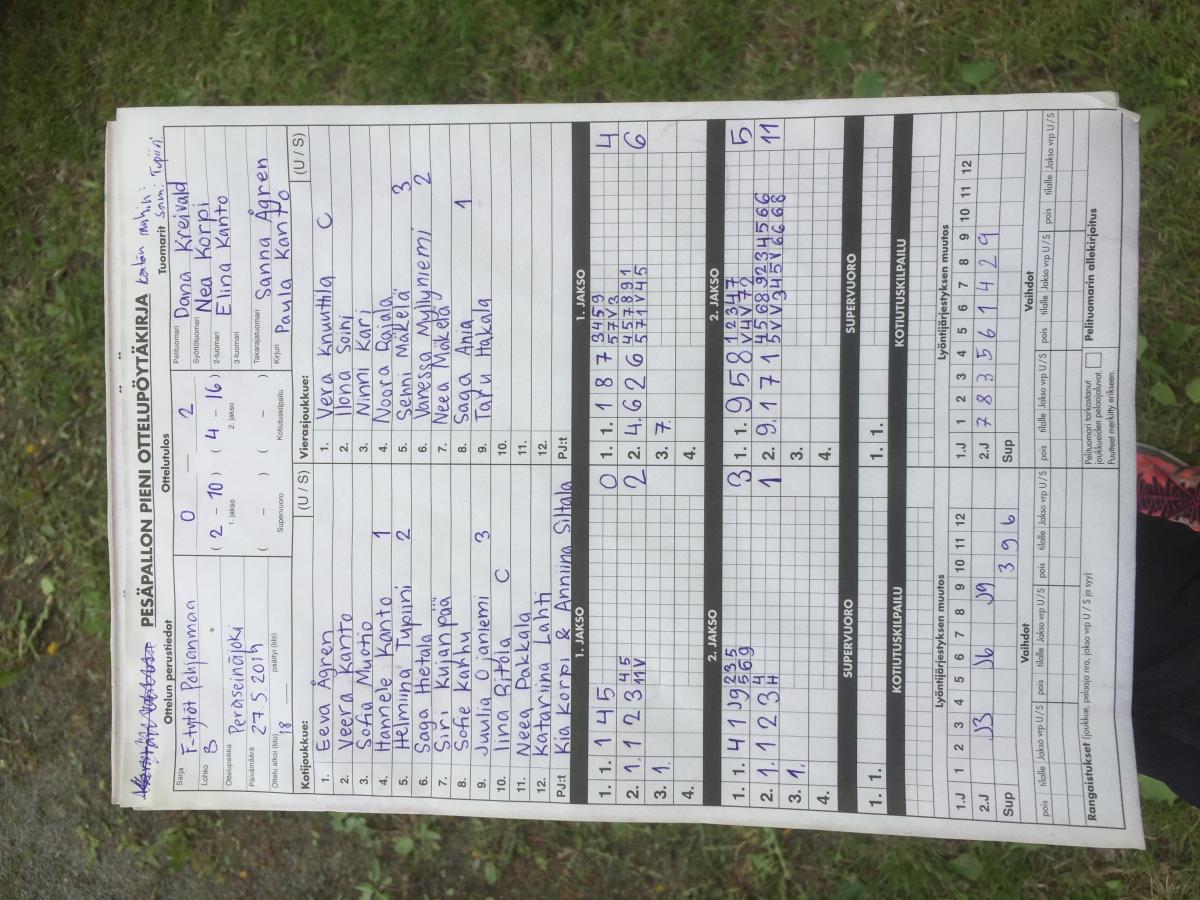 PESÄPALLON PIENI OTTELUPÖYTÄKIRJA
Ottelun perustiedot
Sarja F-tytöt Pohjanmaa
Lohko B
Ottelupaikka Peräseinäjoki
Päivämäärä 27.5.2015
Ottelu alkoi (klo) 18 päättyi (klo)
Ottelutulos
0 2
( 2 - 10 ) ( 4 - 16 )
1. jakso 2. jakso
( - ) ( - )
Supervuoro Kotiutuskilpailu
Tuomarit
Pelituomari Dana Kreivald
Syöttötuomari Nea Korpi
2-tuomari Elina Kanto
3-tuomari
Takarajatuomari Sanna Ågren
Kirjuri Paula Kanto
Kotijoukkue: (U / S)
1. Eeva Ågren
2. Veera Kanto
3. Sofia Muotio
4. Hannele Kanto 1
5. Helmiina Tupiini 2
6. Saga Hietala
7. Siri Kujanpää
8. Sofie Kahhu
9. Juulia Ojaniemi 3
10. Iina Ritola C
11. Neea Pakkala
12. Katariina Lahti
PJ:t Kia Korpi & Anniina Siltala
Vierasjoukkue: (U / S)
1. Vera Knuuttila C
2. Ilona Soni
3. Ninni Kari
4. Noora Rajala
5. Senni Mäkelä 3
6. Vanessa Myllyniemi 2
7. Neea Mäkelä
8. Saga Ania 1
9. Taru Hakala
10.
11.
12.
PJ:t
1. JAKSO 1. JAKSO
1. 1. 1 4 5 0
2. 1. 1 2 3 4 5 2
1 1 V
3. 1.
4.
1. 1. 1 8 7 3 4 5 9 4
5 7 V 3
2. 4. 6 2 6 4 5 7 8 9 1 6
5 7 1 V 4 5
3. 7.
4.
2. JAKSO 2. JAKSO
1. 1. 4 1 J9 2 3 5 3
5 6 9
2. 1. 1 2 3 4 1
4
3. 1.
4.
1. 1. 9 5 8 1 2 3 4 7 5
V 4 V 7 2
2. 9. 1 7 1 4 5 6 8 9 2 3 4 5 6 6 11
5 V V 3 4 5 V 6 6 6 8
3.
4.
SUPERVUORO SUPERVUORO
1. 1. 1. 1.
KOTIUTUSKILPAILU KOTIUTUSKILPAILU
Lyöntijärjestyksen muutos
1.J 1 2 3 4 5 6 7 8 9 10 11 12
2.J J3 J6 J9
Sup 3 9 6
Lyöntijärjestyksen muutos
1.J 1 2 3 4 5 6 7 8 9 10 11 12
2.J 7 8 3 5 6 1 4 2 9
Sup
Vaihdot Vaihdot
pois tilalle Jakso vrp U / S pois tilalle Jakso vrp U / S pois tilalle Jakso vrp U / S
pois tilalle Jakso vrp U / S pois tilalle Jakso vrp U / S pois tilalle Jakso vrp U / S
Rangaistukset (joukkue, pelaaja nro, jakso vrp U / S ja syy)
Pelituomari tarkastanut
joukkueiden pelaajaluvat.
Puutteet merkitty erikseen.
Pelituomarin allekirjoitus